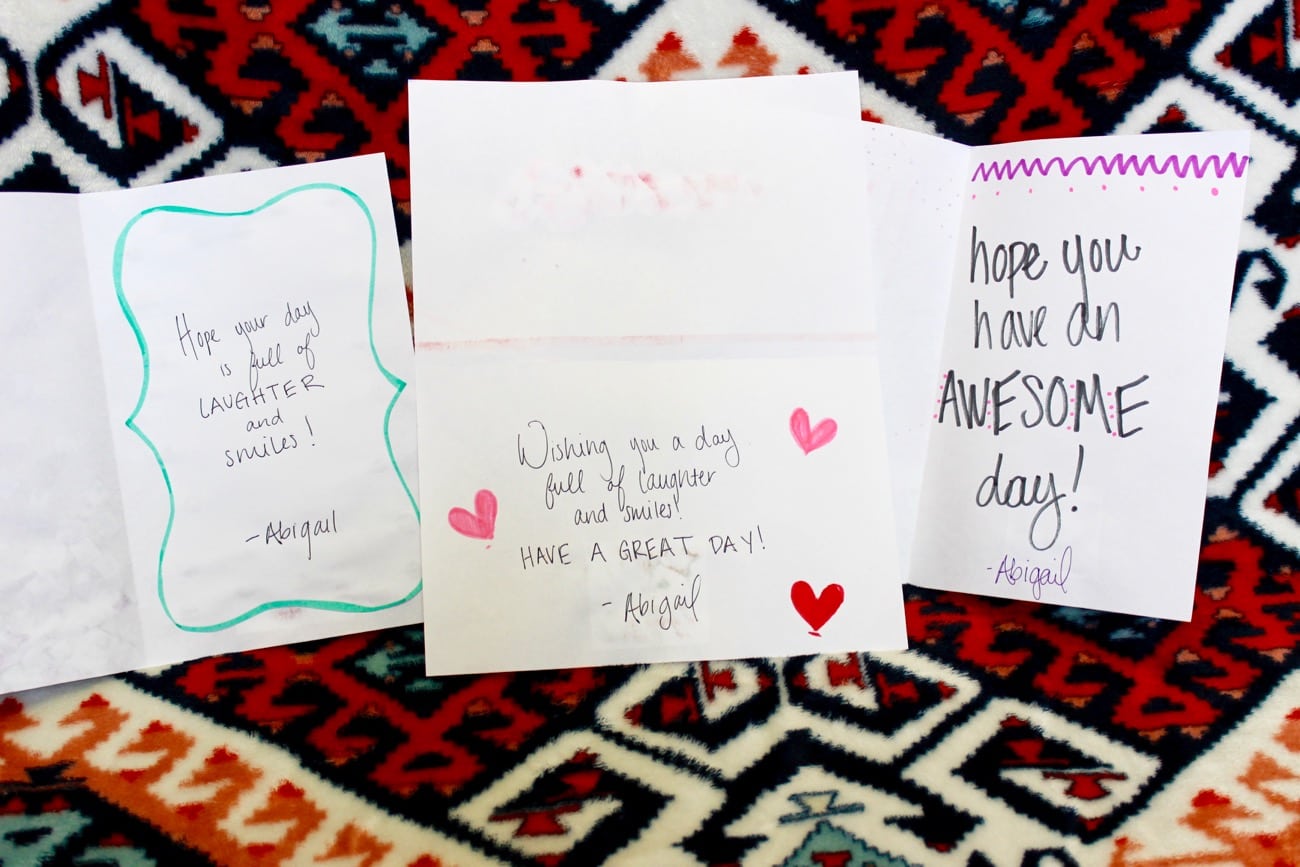 Hope your day
is full of
LAUGHTER
and
smiles!
-Abigail
Wishing you a day
full of laughter
and smiles!
HAVE A GREAT DAY!
- Abigail
hope you
have an
AWESOME
day!
-Abigail